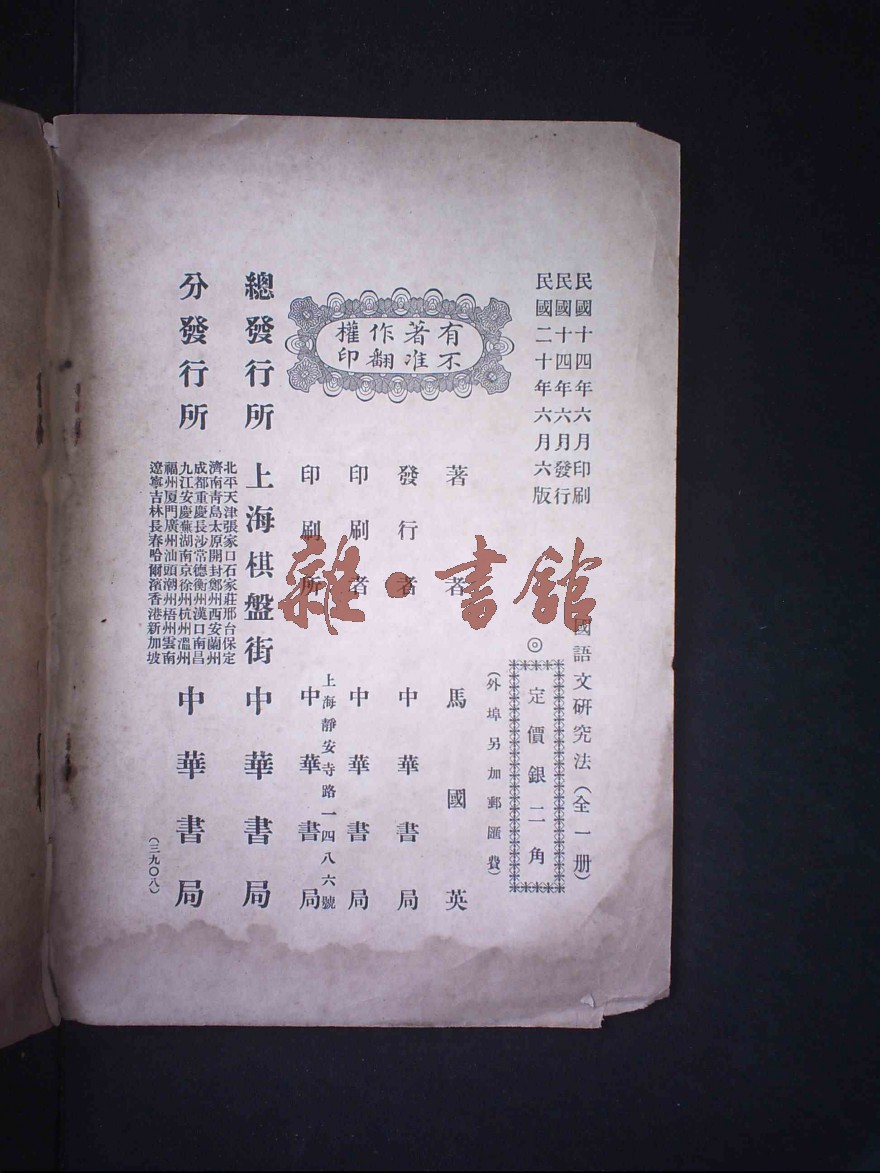 民國十四年六月印刷
民國十四年六月發行
民國二十年六月六版
國語文研究法（全一册）
◎
定價銀二角
（外埠另加郵匯費）
有著作權
不准翻印
著者 馬國英
發行者 中華書局
印刷者 中華書局
上海靜安寺路一四八六號
印刷所 中華書局
總發行所 上海棋盤街 中華書局
分發行所
北平天津張家口石家莊邢台保定
濟南青島太原開封鄭州西安蘭州
成都重慶長沙常德衡州漢口南昌
九江安慶蕪湖南京徐州杭州溫州
福州厦門廣州汕頭潮州梧州雲南
遼寧吉林長春哈爾濱香港新加坡
中華書局
（三九〇八）
雜·書館